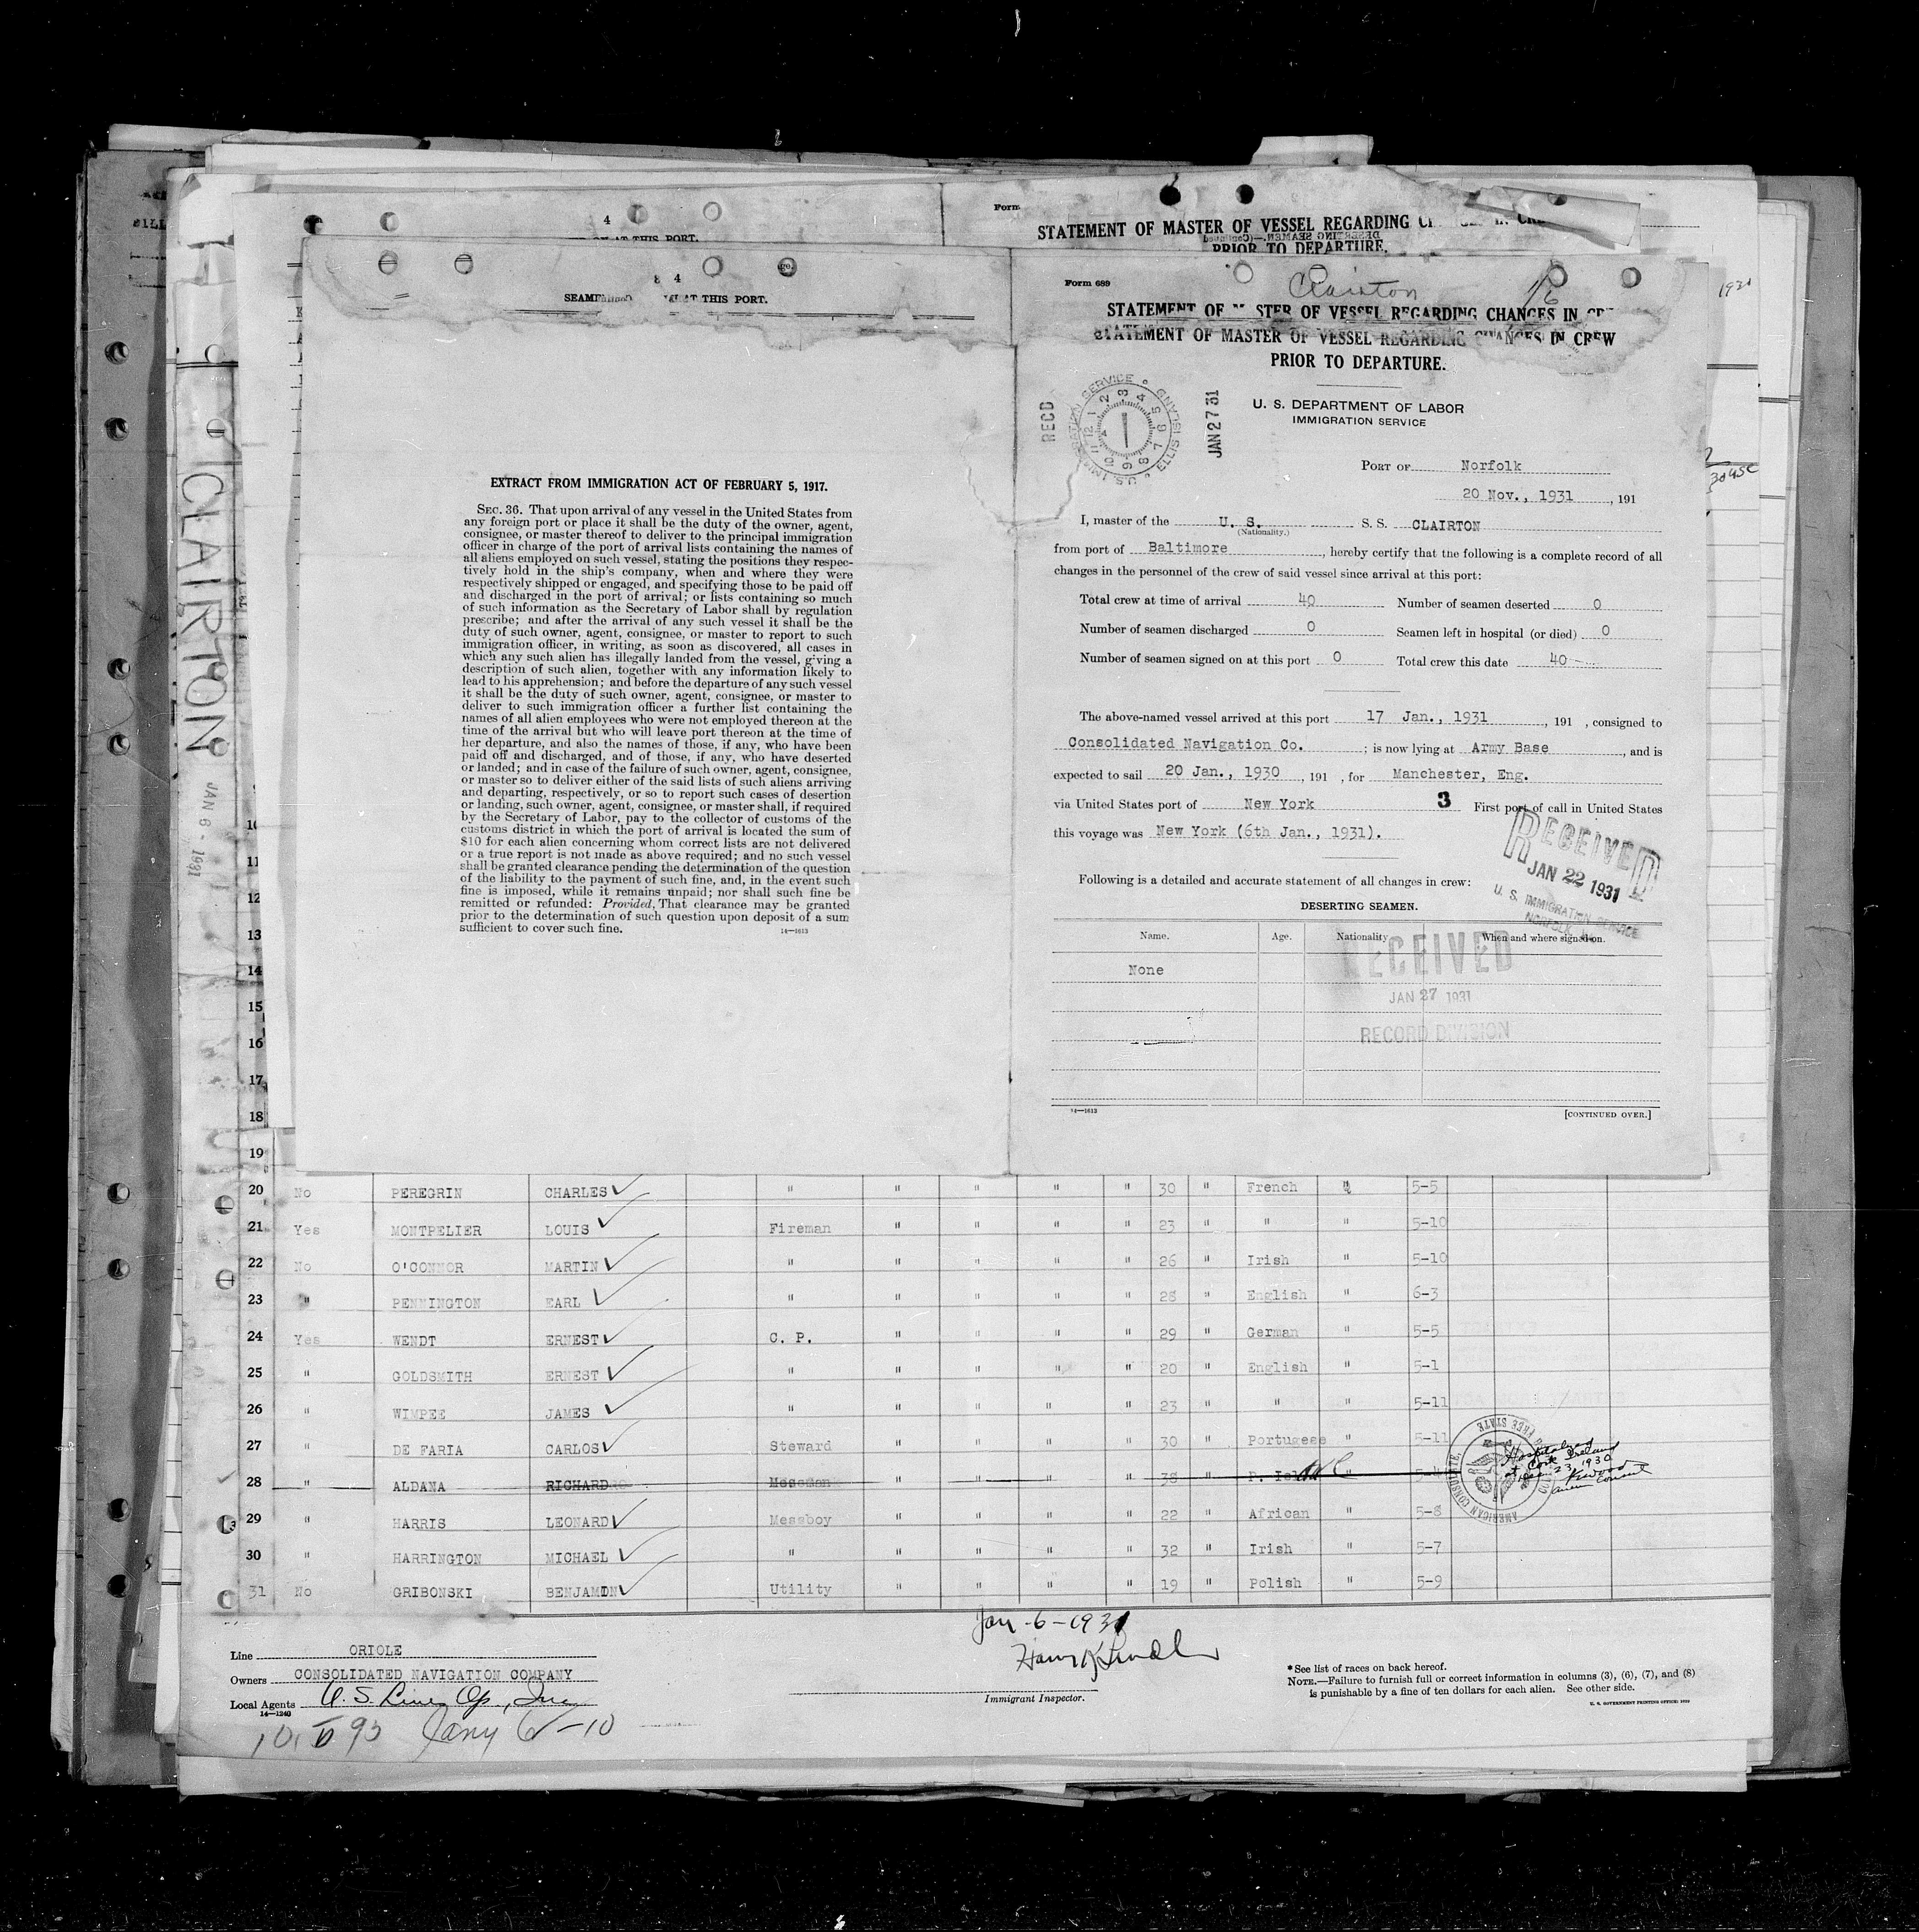 4
AT THIS PORT.
Form
STATEMENT OF MASTER OF VESSEL REGARDING
PRIOR TO DEPARTURE.
CLAIRTON
JAN 6 - 1931
4
SEAMEN AT THIS PORT.
EXTRACT FROM IMMIGRATION ACT OF FEBRUARY 5, 1917.
SEC. 36. That upon arrival of any vessel in the United States from
any foreign port or place it shall be the duty of the owner, agent,
consignee, or master thereof to deliver to the principal immigration
officer in charge of the port of arrival lists containing the names of
all aliens employed on such vessel, stating the positions they respec-
tively hold in the ship's company, when and where they were
respectively shipped or engaged, and specifying those to be paid off
and discharged in the port of arrival; or lists containing so much
of such information as the Secretary of Labor shall by regulation
prescribe; and after the arrival of any such vessel it shall be the
duty of such owner, agent, consignee, or master to report to such
immigration officer, in writing, as soon as discovered, all cases in
which any such alien has illegally landed from the vessel, giving a
description of such alien, together with any information likely to
lead to his apprehension; and before the departure of any such vessel
it shall be the duty of such owner, agent, consignee, or master to
deliver to such immigration officer a further list containing the
names of all alien employees who were not employed thereon at the
time of the arrival but who will leave port thereon at the time of
her departure, and also the names of those, if any, who have been
paid off and discharged, and of those, if any, who have deserted
or landed; and in case of the failure of such owner, agent, consignee,
or master so to deliver either of the said lists of such aliens arriving
and departing, respectively, or so to report such cases of desertion
or landing, such owner, agent, consignee, or master shall, if required
by the Secretary of Labor, pay to the collector of customs of the
customs district in which the port of arrival is located the sum of
$10 for each alien concerning whom correct lists are not delivered
or a true report is not made as above required; and no such vessel
shall be granted clearance pending the determination of the question
of the liability to the payment of such fine, and, in the event such
fine is imposed, while it remains unpaid; nor shall such fine be
remitted or refunded: Provided, That clearance may be granted
prior to the determination of such question upon deposit of a sum
sufficient to cover such fine.
14—1613
Form 689
Clairton
STATEMENT OF MASTER OF VESSEL REGARDING CHANGES IN
STATEMENT OF MASTER OF VESSEL REGARDING CHANGES IN CREW
PRIOR TO DEPARTURE.
U. S. DEPARTMENT OF LABOR
IMMIGRATION SERVICE
RECD
U.S. IMMIGRATION SERVICE ELLIS ISLAND
JAN 27 31
PORT OF Norfolk
20 Nov., 1931, 191
I, master of the U. S. S. S. CLAIRTON
(Nationality.)
from port of Baltimore, hereby certify that the following is a complete record of all
changes in the personnel of the crew of said vessel since arrival at this port:
Total crew at time of arrival 40 Number of seamen deserted 0
Number of seamen discharged 0 Seamen left in hospital (or died) 0
Number of seamen signed on at this port 0 Total crew this date 40
The above-named vessel arrived at this port 17 Jan., 1931, 191 , consigned to
Consolidated Navigation Co. ; is now lying at Army Base, and is
expected to sail 20 Jan., 1930, 191 , for Manchester, Eng.
via United States port of New York 3 First port of call in United States
this voyage was New York (6th Jan., 1931).
RECEIVED
JAN 22 1931
U. S. IMMIGRATION SERVICE
Following is a detailed and accurate statement of all changes in crew:
DESERTING SEAMEN.
Name. Age. Nationality When and where signed on.
None
RECEIVED
JAN 27 1931
RECORD DIVISION
14—1613
[CONTINUED OVER.]
10
11
12
13
14
15
16
17
18
19
20 No PEREGRIN CHARLES " " " " " 30 " French " 5-5
21 Yes MONTPELIER LOUIS Fireman " " " " 23 " " " 5-10
22 No O'CONNOR MARTIN " " " " " 26 " Irish " 5-10
23 " PENNINGTON EARL " " " " " 28 " English " 6-3
24 Yes WENDT ERNEST C. P. " " " " 29 " German " 5-5
25 " GOLDSMITH ERNEST " " " " " 20 " English " 5-1
26 " WIMPEE JAMES " " " " " 23 " " " 5-11
27 " DE FARIA CARLOS Steward " " " " 30 " Portugese " 5-11
28 " ALDANA RICHARD Messman " " " " 38 "
AMERICAN CONSULATE
FREE STATE
Hospitalized
at Cork Ireland
Dec 23, 1930
Consul
29 " HARRIS LEONARD Messboy " " " " 22 " African " 5-8
30 " HARRINGTON MICHAEL " " " " " 32 " Irish " 5-7
31 No GRIBONSKI BENJAMIN Utility " " " " 19 " Polish " 5-9
Jan-6-1931
Line ORIOLE
Owners CONSOLIDATED NAVIGATION COMPANY
Local Agents U. S. Lines Op., Inc.
14—1240
Immigrant Inspector.
*See list of races on back hereof.
NOTE.—Failure to furnish full or correct information in columns (3), (6), (7), and (8)
is punishable by a fine of ten dollars for each alien. See other side.
U. S. GOVERNMENT PRINTING OFFICE: 1929